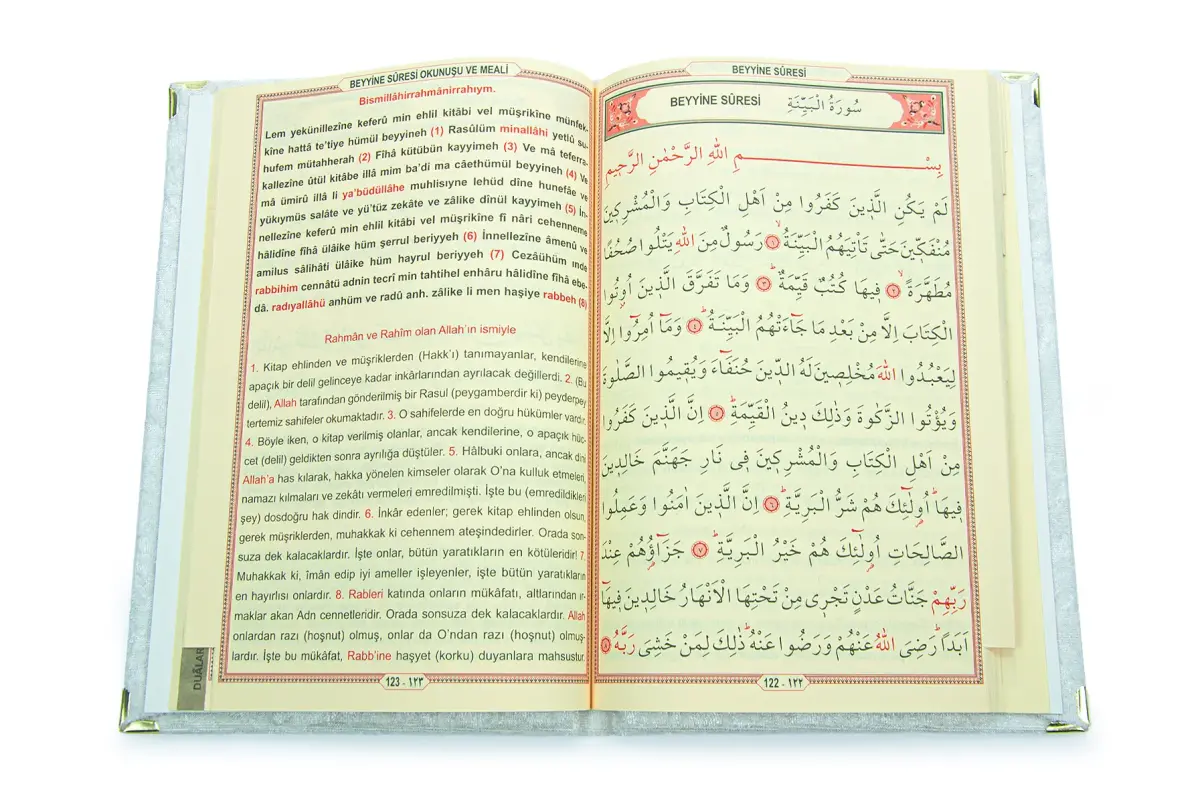 BEYYİNE SÛRESİ
BEYYİNE SÛRESİ سُورَةُ الْبَيِّنَةِ
بِسْمِ اللهِ الرَّحْمٰنِ الرَّحِيمِ
لَمْ يَكُنِ الَّذِينَ كَفَرُوا مِنْ اَهْلِ الْكِتَابِ وَالْمُشْرِكِينَ
مُنْفَكِّينَ حَتّٰى تَاْتِيَهُمُ الْبَيِّنَةُ ﴿١﴾ رَسُولٌ مِنَ اللهِ يَتْلُوا صُحُفًا
مُطَهَّرَةً ﴿٢﴾ فِيهَا كُتُبٌ قَيِّمَةٌ ﴿٣﴾ وَمَا تَفَرَّقَ الَّذِينَ اُوتُوا
الْكِتَابَ اِلَّا مِنْ بَعْدِ مَا جَٓاءَتْهُمُ الْبَيِّنَةُ ﴿٤﴾ وَمَٓا اُمِرُٓوا اِلَّا
لِيَعْبُدُوا اللهَ مُخْلِصِينَ لَهُ الدِّينَ حُنَفَٓاءَ وَيُقِيمُوا الصَّلٰوةَ
وَيُؤْتُوا الزَّكٰوةَ وَذٰلِكَ دِينُ الْقَيِّمَةِ ﴿٥﴾ اِنَّ الَّذِينَ كَفَرُوا
مِنْ اَهْلِ الْكِتَابِ وَالْمُشْرِكِينَ فِي نَارِ جَهَنَّمَ خَالِدِينَ
فِيهَا اُولٰٓئِكَ هُمْ شَرُّ الْبَرِيَّةِ ﴿٦﴾ اِنَّ الَّذِينَ اٰمَنُوا وَعَمِلُوا
الصَّالِحَاتِ اُولٰٓئِكَ هُمْ خَيْرُ الْبَرِيَّةِ ﴿٧﴾ جَزَٓاؤُهُمْ عِنْدَ
رَبِّهِمْ جَنَّاتُ عَدْنٍ تَجْرِي مِنْ تَحْتِهَا الْاَنْهَارُ خَالِدِينَ فِيهَا
اَبَدًا رَضِيَ اللهُ عَنْهُمْ وَرَضُوا عَنْهُ ذٰلِكَ لِمَنْ خَشِيَ رَبَّهُ ﴿٨﴾
122 - ١٢٢
BEYYİNE SÛRESİ OKUNUŞU VE MEALİ
Bismillâhirrahmânirrahıym.
Lem yekünillezîne keferû min ehlil kitâbi vel müşrikîne münfek-
kîne hattâ te'tiye hümül beyyineh (1) Rasûlüm minallâhi yetlû su-
hufem mütahherah (2) Fîhâ kütübün kayyimeh (3) Ve mâ teferra-
kallezîne ûtül kitâbe illâ mim ba'di ma câethümül beyyineh (4) Ve
mâ ümirû illâ li ya'büdüllâhe muhlisıyne lehüd dîne hunefâe ve
yükıymüs salâte ve yü'tüz zekâte ve zâlike dînül kayyimeh (5) İn-
nellezîne keferû min ehlil kitâbi vel müşrikîne fî nâri cehenneme
hâlidîne fîhâ ülâike hüm şerrul beriyyeh (6) İnnellezîne âmenû ve
amilus sâlihâti ülâike hüm hayrul beriyyeh (7) Cezâühüm ınde
rabbihim cennâtü adnin tecrî min tahtihel enhâru hâlidîne fîhâ ebe-
dâ. radıyallâhü anhüm ve radû anh. zâlike li men haşiye rabbeh (8)
Rahmân ve Rahîm olan Allah'ın ismiyle
1. Kitap ehlinden ve müşriklerden (Hakk'ı) tanımayanlar, kendilerine
apaçık bir delil gelinceye kadar inkârlarından ayrılacak değillerdi. 2. (Bu
delil), Allah tarafından gönderilmiş bir Rasul (peygamberdir ki) peyderpey
tertemiz sahifeler okumaktadır. 3. O sahifelerde en doğru hükümler vardır.
4. Böyle iken, o kitap verilmiş olanlar, ancak kendilerine, o apaçık hüc-
cet (delil) geldikten sonra ayrılığa düştüler. 5. Hâlbuki onlara, ancak dini
Allah'a has kılarak, hakka yönelen kimseler olarak O'na kulluk etmeleri,
namazı kılmaları ve zekâtı vermeleri emredilmişti. İşte bu (emredildikleri
şey) dosdoğru hak dindir. 6. İnkâr edenler; gerek kitap ehlinden olsun,
gerek müşriklerden, muhakkak ki cehennem ateşindedirler. Orada son-
suza dek kalacaklardır. İşte onlar, bütün yaratıkların en kötüleridir! 7.
Muhakkak ki, îmân edip iyi ameller işleyenler, işte bütün yaratıkların
en hayırlısı onlardır. 8. Rableri katında onların mükâfatı, altlarından ır-
maklar akan Adn cennetleridir. Orada sonsuza dek kalacaklardır. Allah
onlardan razı (hoşnut) olmuş, onlar da O'ndan razı (hoşnut) olmuş-
lardır. İşte bu mükâfat, Rabb'ine haşyet (korku) duyanlara mahsustur.
123 - ١٢٣
DUÂLAR